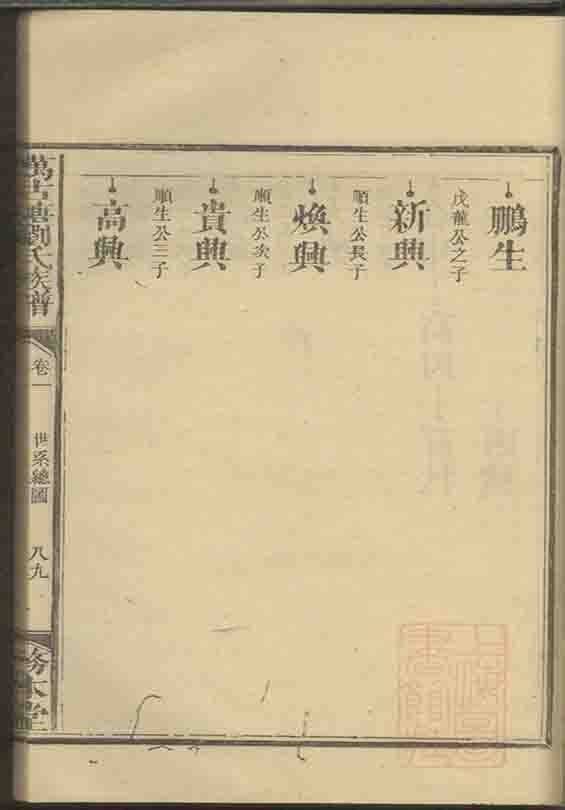 鵬生
戊龍公之子
新興
順生公長子
煥興
順生公次子
貴興
順生公三子
高興
劉氏族譜
卷一
世系總圖
八九
務本堂